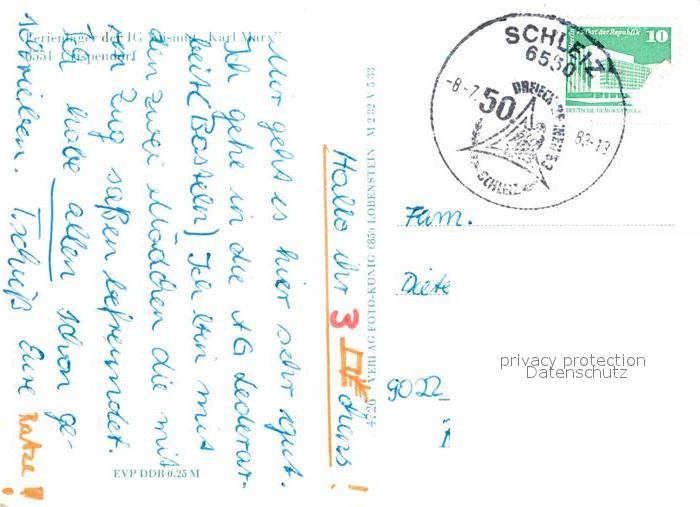 Ferienlager der IG Wismut „Karl Marx"
6551 Rispendorf
Hallo ihr 3 chens!
Mir geht es hier sehr gut.
Ich gehe in die AG Lederar-
beit (Basteln) Ich bin mit
den zwei Mädchen die mit
im Zug saßen befreundet.
Ich habe allen schon ge-
schrieben. Tschüß Eure Ratze!
EVP DDR 0,25 M
4720 VERLAG FOTO-KÖNIG 6859 LOBENSTEIN M 2/82 V 5/33
SCHLEIZ
6550
-8.-7.
83-13
50.
SCHLEIZ
10
DEUTSCHE DEMOKRATISCHE
Fam.
Diete
9022
privacy protection
Datenschutz